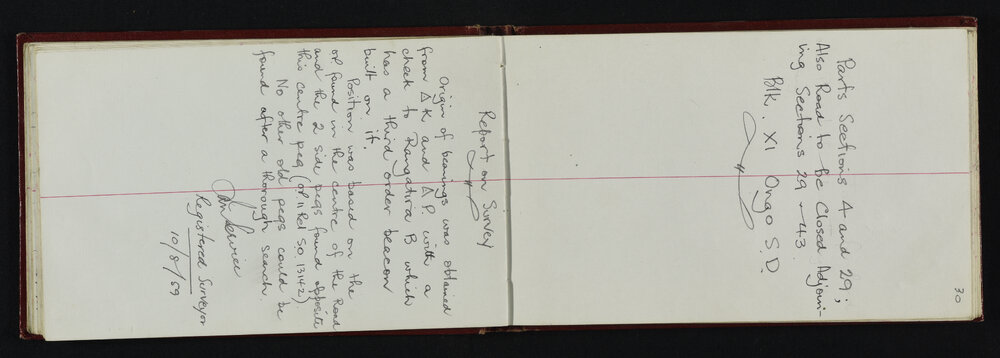 30
Parts Sections 4 and 29;
Also Road to be Closed Adjoin-
ing Sections 29 - 43
Blk. XI Ongo S.D.
Report on Survey
Origin of bearings was obtained
from △K and △P. with a
check to Rangatira B which
has a third order beacon
built on it.
Position was based on the
OP found in the centre of the Road
and the 2 side pegs found opposite
this centre peg (O.P. II Rd S.O. 13142).
No other old pegs could be
found after a thorough search.
Registered Surveyor
10/8/59